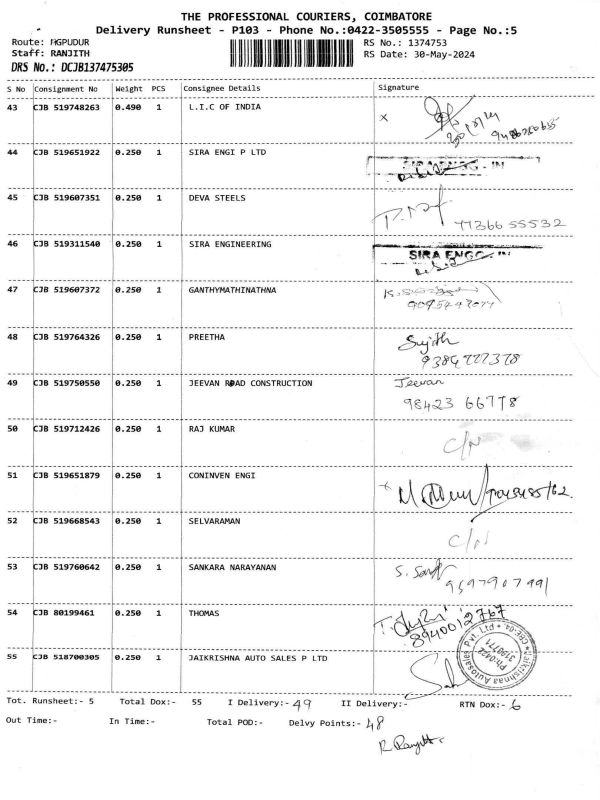 THE PROFESSIONAL COURIERS, COIMBATORE
Delivery Runsheet - P103 - Phone No.:0422-3505555 - Page No.:5
Route: MGPUDUR
RS No.: 1374753
Staff: RANJITH
RS Date: 30-May-2024
DRS No.: DCJB137475305
S No Consignment No Weight PCS Consignee Details Signature
43 CJB 519748263 0.490 1 L.I.C OF INDIA x
44 CJB 519651922 0.250 1 SIRA ENGI P LTD
45 CJB 519607351 0.250 1 DEVA STEELS
77366 55532
46 CJB 519311540 0.250 1 SIRA ENGINEERING SIRA ENGG
47 CJB 519607372 0.250 1 GANTHYMATHINATHNA
48 CJB 519764326 0.250 1 PREETHA Sujith
49 CJB 519750550 0.250 1 JEEVAN ROAD CONSTRUCTION Jeevan
98423 66778
50 CJB 519712426 0.250 1 RAJ KUMAR C/N
51 CJB 519651879 0.250 1 CONINVEN ENGI
52 CJB 519668543 0.250 1 SELVARAMAN C/N
53 CJB 519760642 0.250 1 SANKARA NARAYANAN
9597907991
54 CJB 80199461 1 0.250 1 THOMAS
8940012767
55 CJB 518700305 0.250 1 JAIKRISHNA AUTO SALES P LTD
Jaikrishnaa Autosales Pvt. Ltd
Tot. Runsheet:- 5 Total Dox:- 55 I Delivery:- 49 II Delivery:- RTN Dox:- 6
Out Time:- In Time:- Total POD:- Delvy Points:- 48